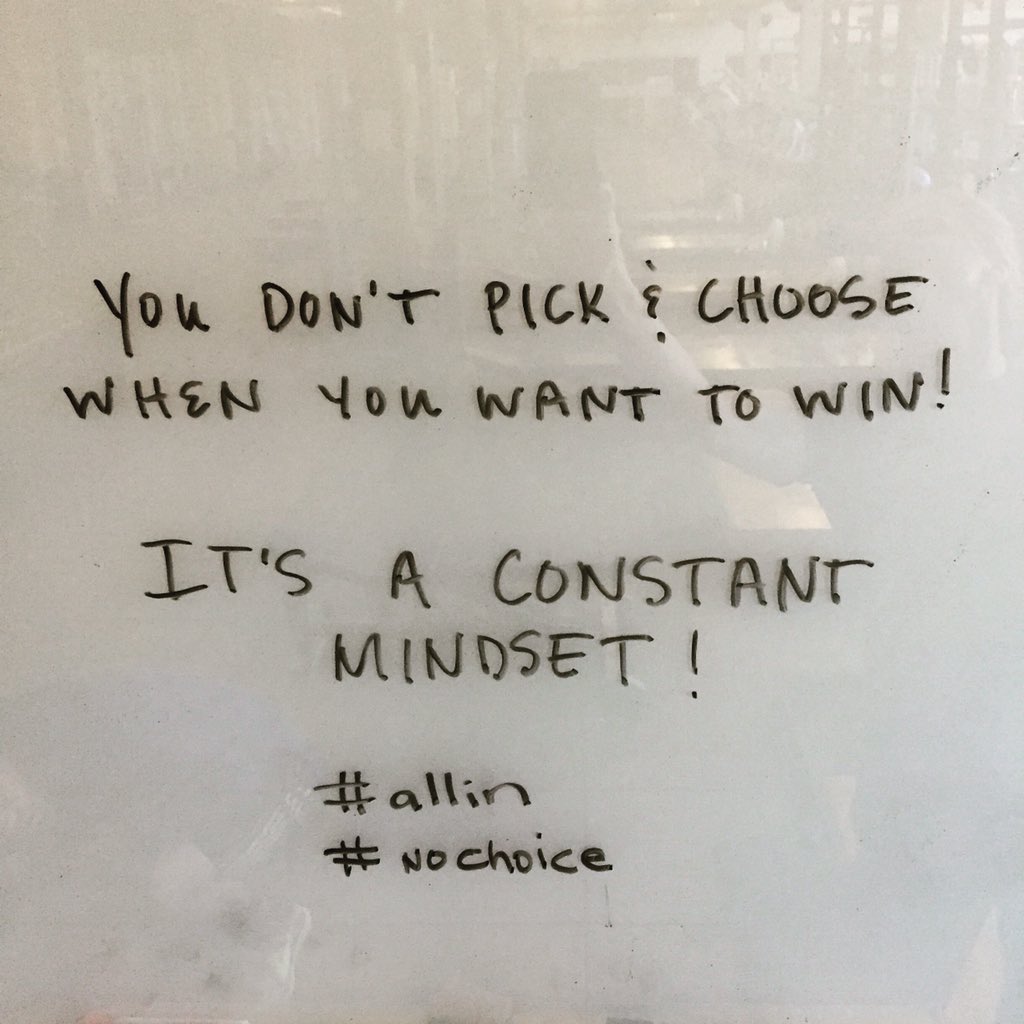 YOU DON'T PICK & CHOOSE
WHEN YOU WANT TO WIN!
IT'S A CONSTANT
MINDSET!
#allin
#NOchoice